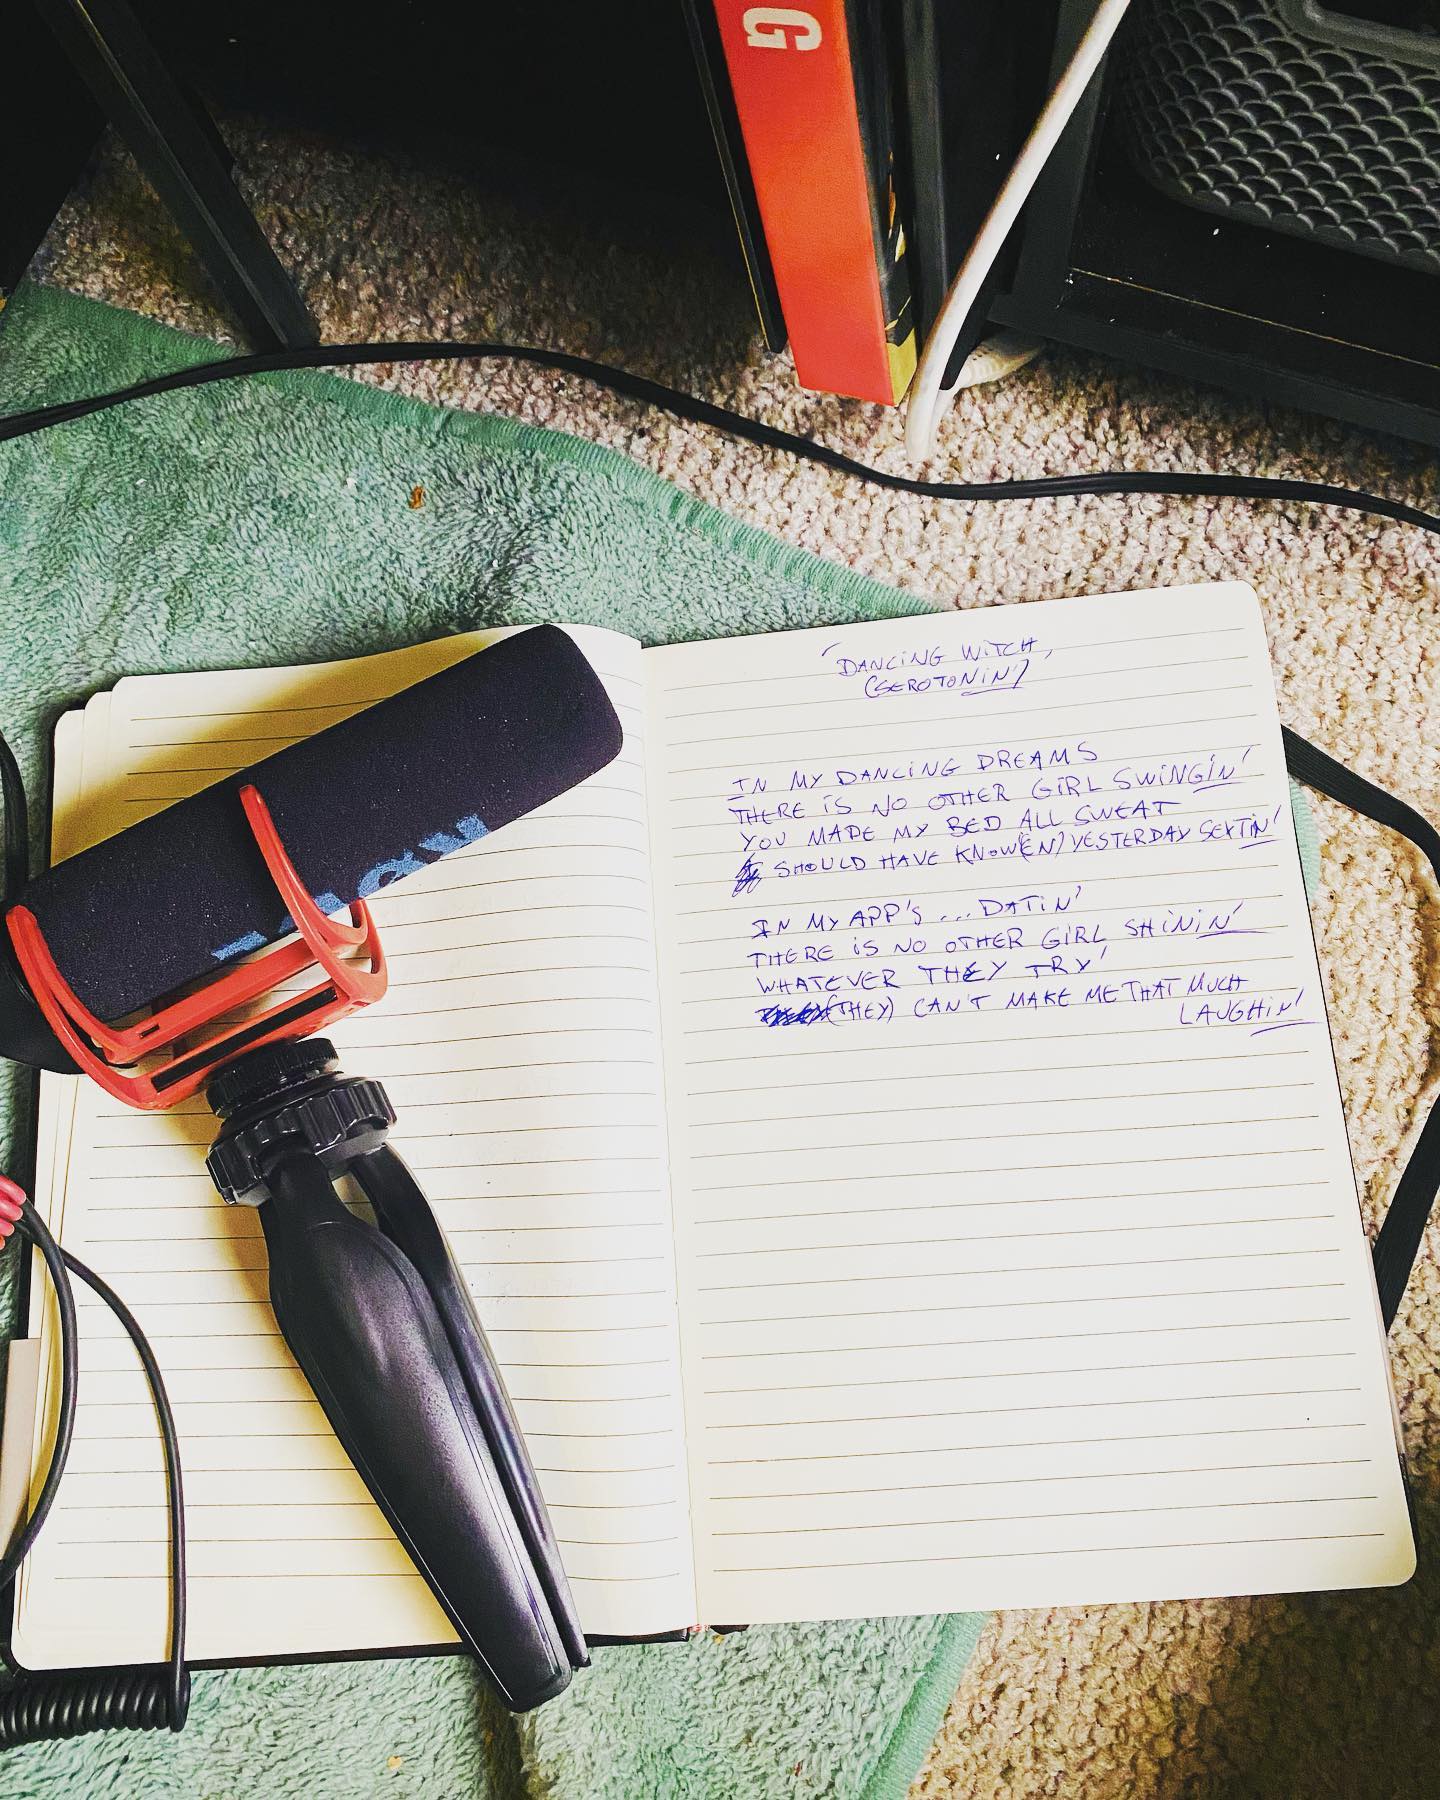 G
'DANCING WITCH,
(SEROTONIN')
IN MY DANCING DREAMS
THERE IS NO OTHER GIRL SWINGIN'
YOU MADE MY BED ALL SWEAT
SHOULD HAVE KNOW(EN) YESTERDAY SEXTIN'
IN MY APP'S ... DATIN'
THERE IS NO OTHER GIRL SHININ'
WHATEVER THEY TRY'
(THEY) CAN'T MAKE ME THAT MUCH
LAUGHIN'